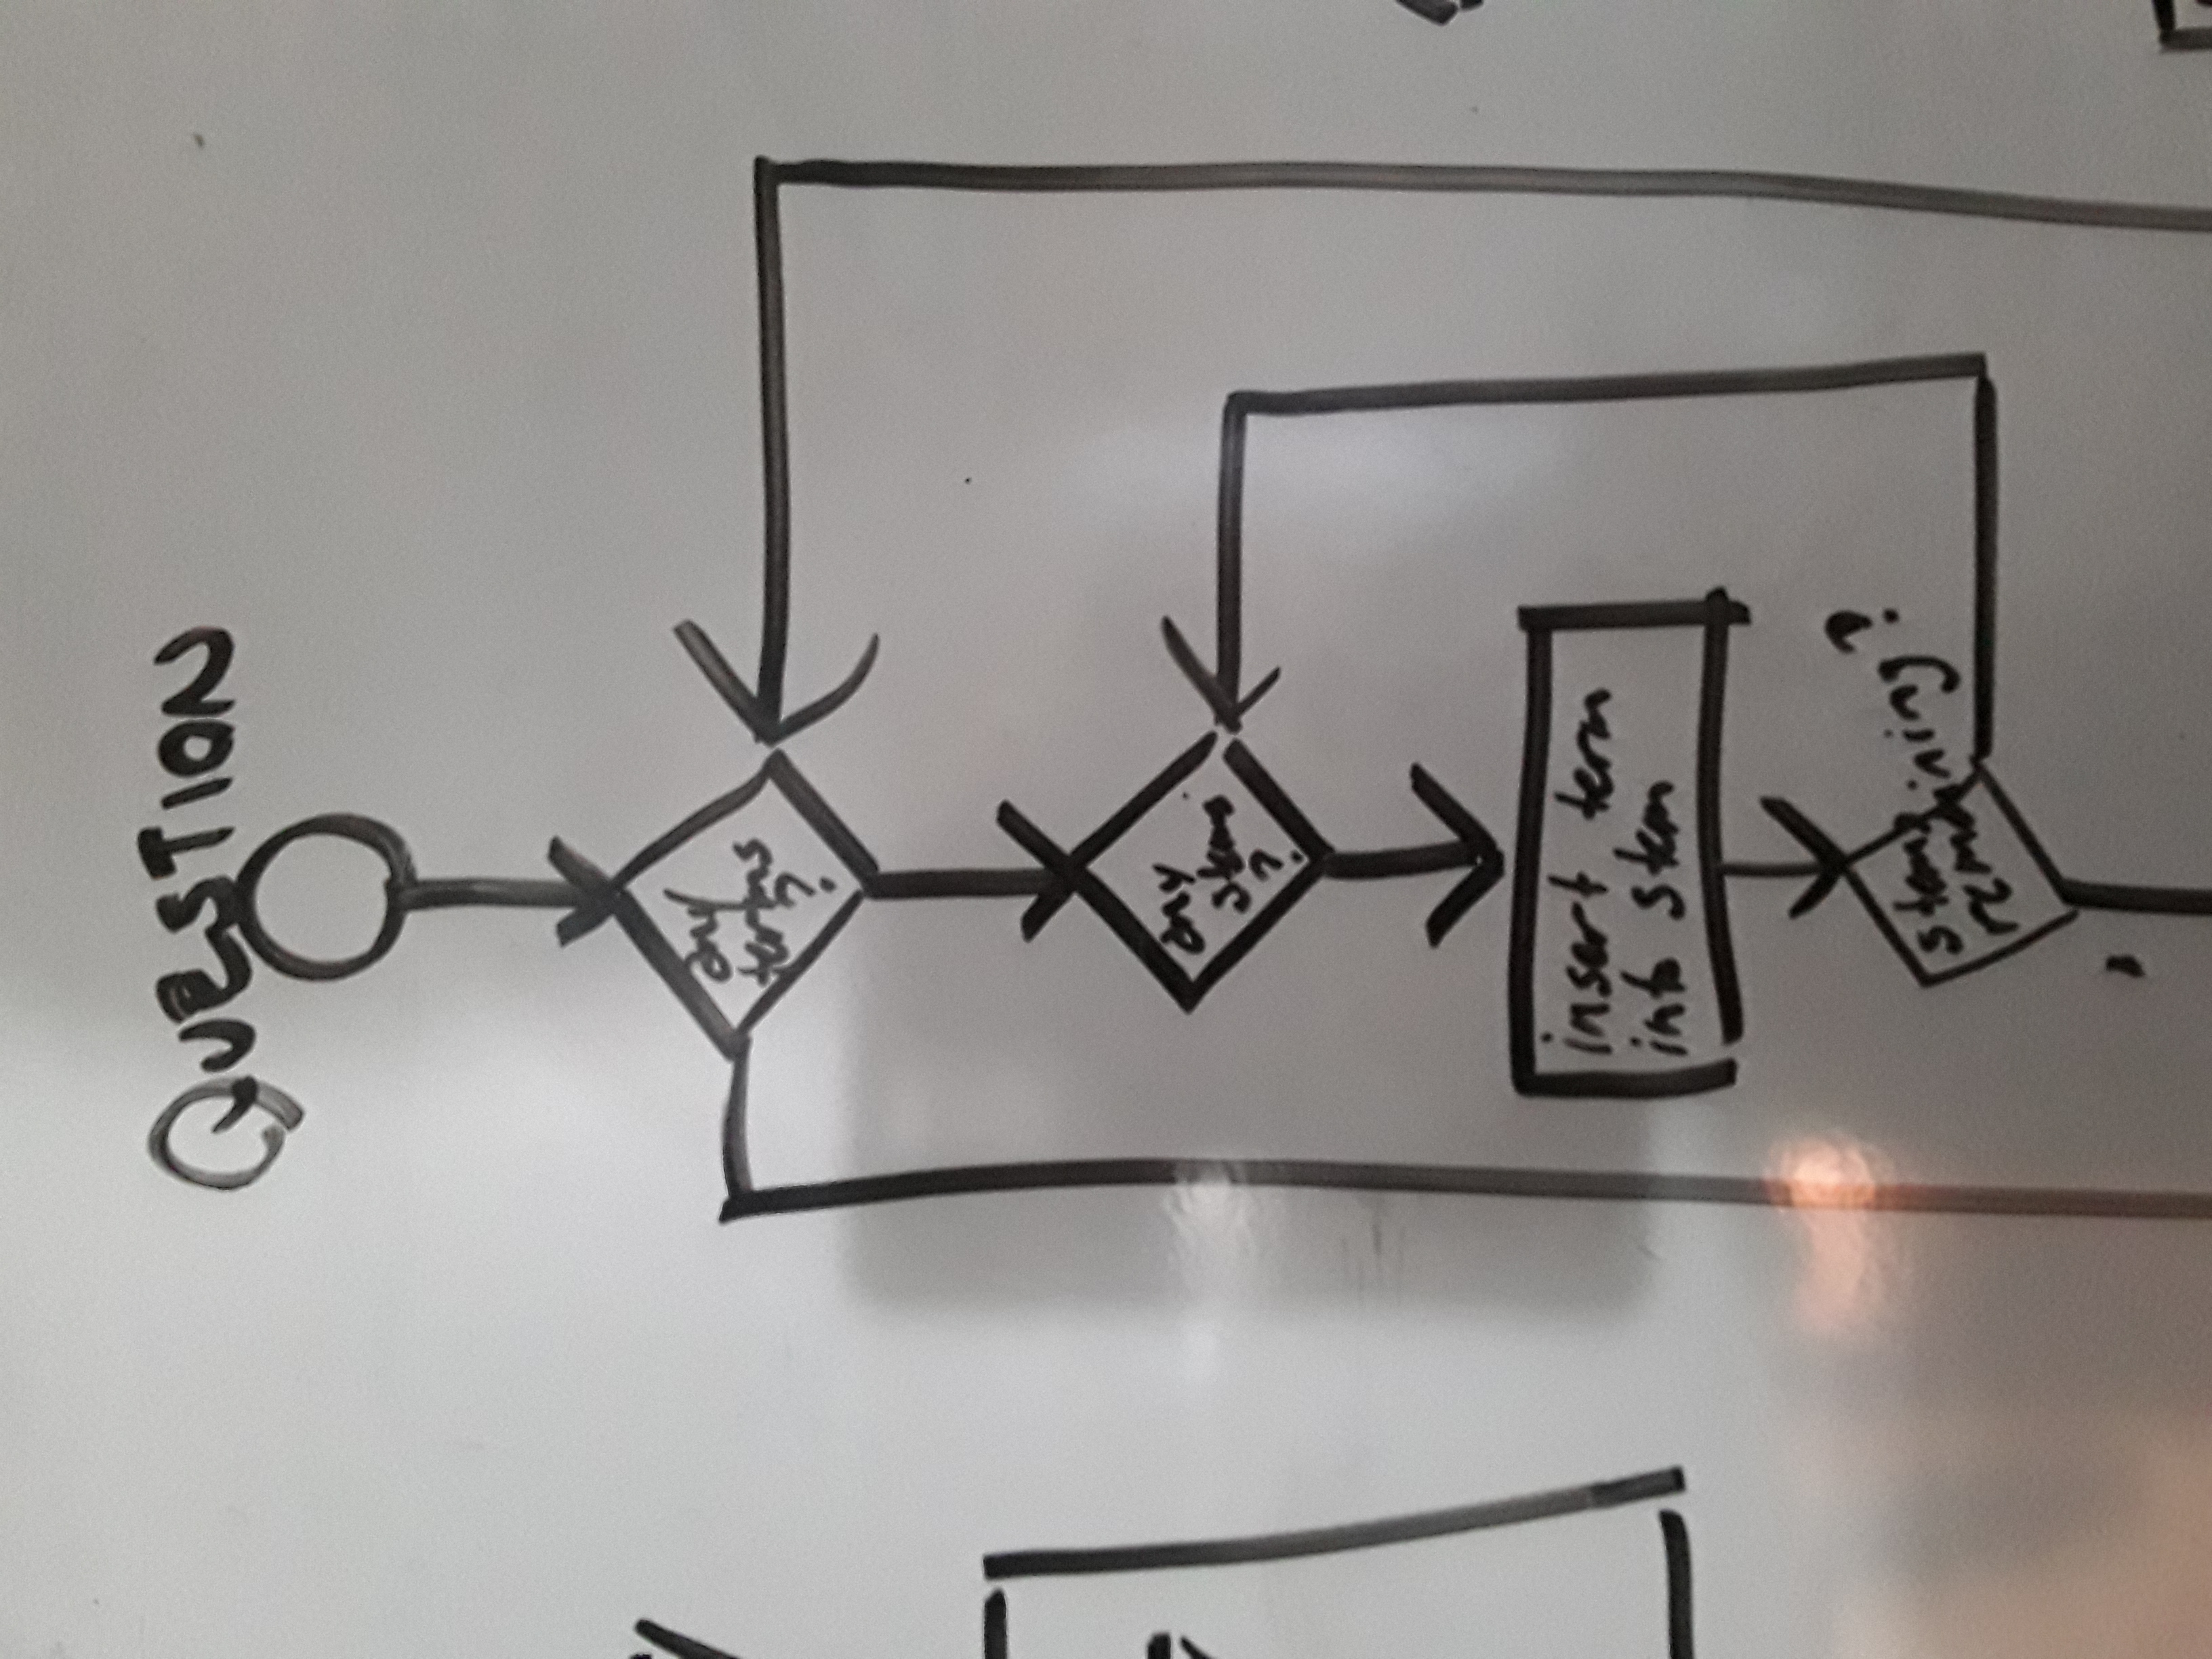 QUESTION
any
terms
?
any
stems
?
insert term
into stem
stems
remaining?